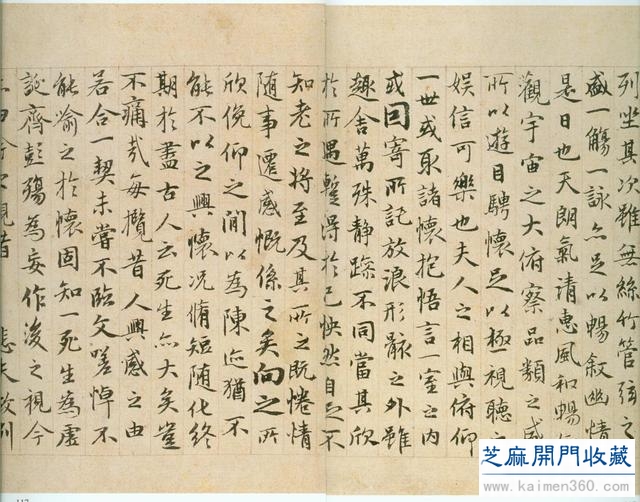 列坐其次雖無絲竹管弦之
盛一觴一詠亦足以暢敘幽情
是日也天朗氣清惠風和暢
觀宇宙之大俯察品類之盛
所以遊目騁懷足以極視聽之
娛信可樂也夫人之相與俯仰
一世或取諸懷抱悟言一室之內
或因寄所託放浪形骸之外雖
趣舍萬殊靜躁不同當其欣
於所遇蹔得於己怏然自足不
知老之將至及其所之既惓情
隨事遷感慨係之矣向之所
欣俛仰之閒以為陳迹猶不
能不以之興懷況脩短隨化終
期於盡古人云死生亦大矣豈
不痛哉每攬昔人興感之由
若合一契未嘗不臨文嗟悼不
能喻之於懷固知一死生為虛
誕齊彭殤為妄作後之視今
今之視昔 悲夫故列
芝麻開門收藏
www.kaimen360.com